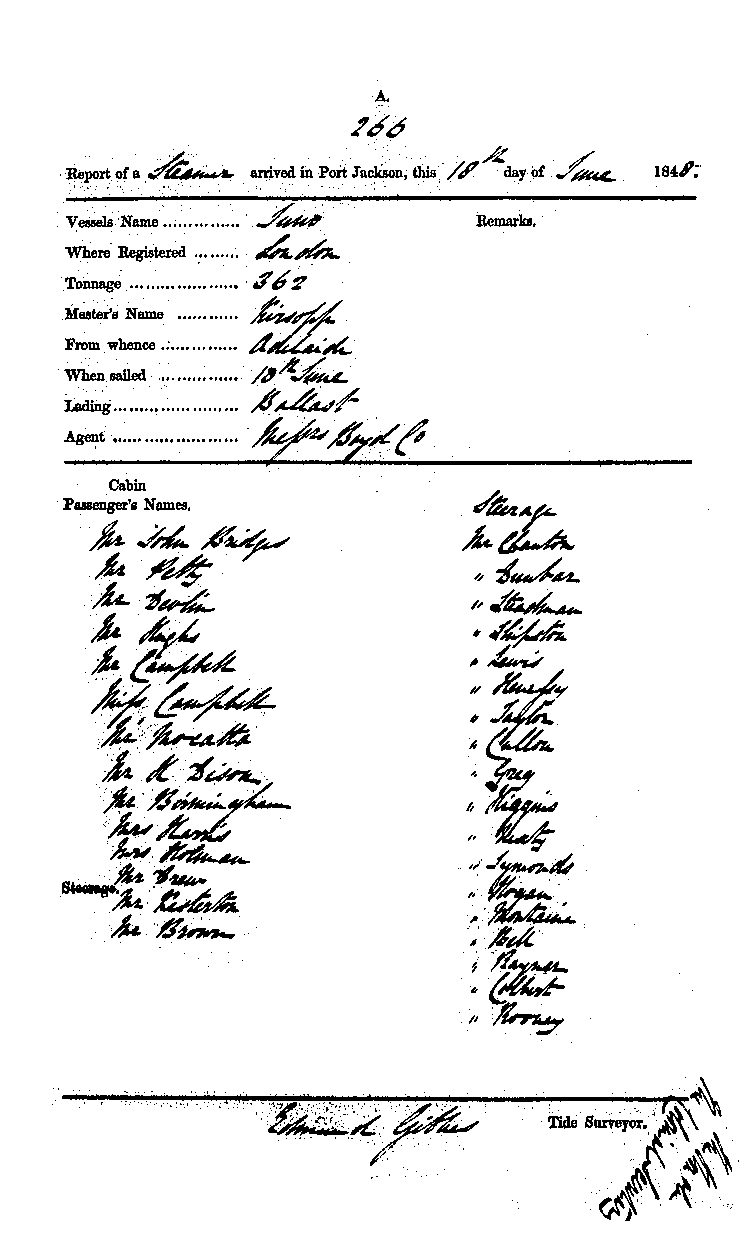 A.
266
Report of a Steamer arrived in Port Jackson, this 18th day of June 1848.
Vessels Name .............. Juno
Remarks.
Where Registered ......... London
Tonnage .................... 362
Master's Name ........... Kirsopp
From whence .............. Adelaide
When sailed .............. 13th June
Lading....................... Ballast
Agent ....................... Messrs Boyd Co
Cabin
Passenger's Names.
Mr John Bridges
Mr Petty
Mr Devlin
Mr Hughs
Mr Campbell
Miss Campbell
Mr Mocatta
Mr H Dison
Mr Birmingham
Mrs Harris
Mrs Holman
Mr Drew
Steerage.
Mr Kesterton
Mr Brown
Steerage
Mr Clanton
" Dunbar
" Steadman
" Shipston
" Lewis
" Henessy
" Taylor
" Cullon
" Grey
" Higgins
" Keaty
" Symonds
" Hogan
" Montaine
" Bell
" Rayner
" Colbert
" Rooney
Edmund Gibbes Tide Surveyor.